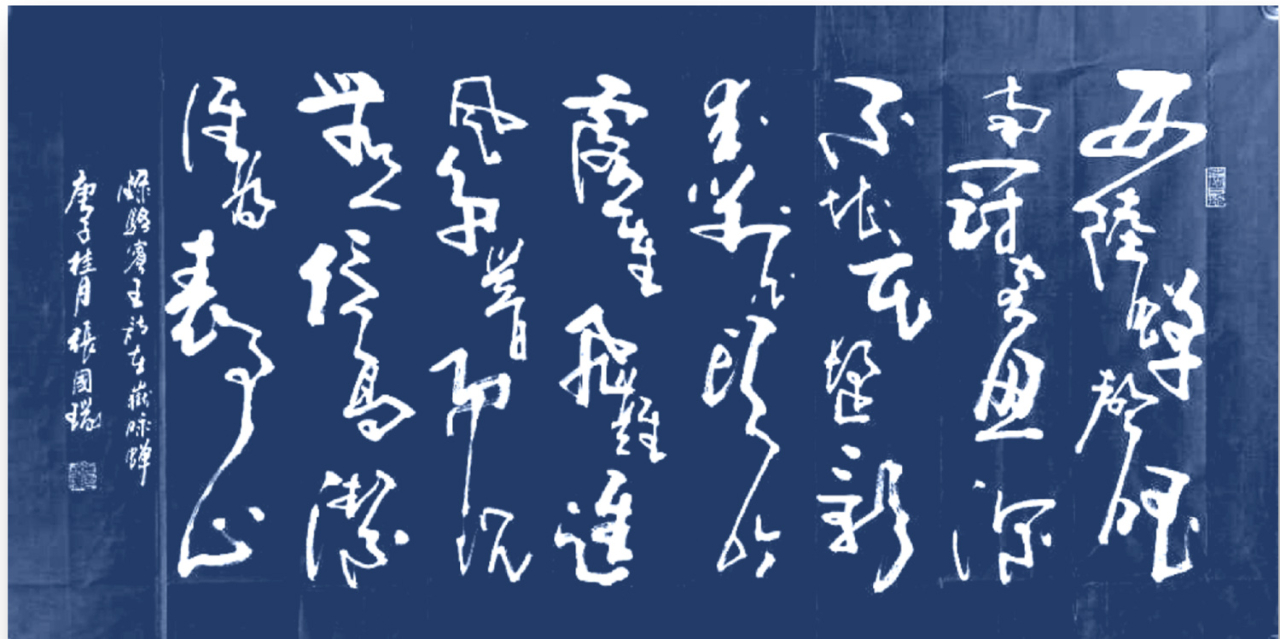 西陸蟬聲唱
南冠客思深
不堪玄鬢影
來對白頭吟
露重飛難進
風多響易沉
無人信高潔
誰為表予心
錄駱賓王詩在獄咏蟬
庚子桂月張國